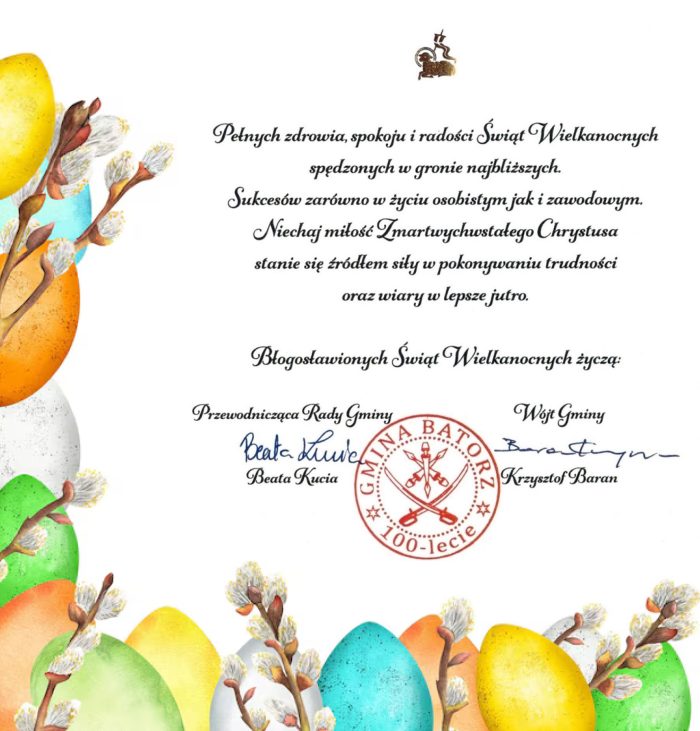 Pełnych zdrowia, spokoju i radości Świąt Wielkanocnych
spędzonych w gronie najbliższych.
Sukcesów zarówno w życiu osobistym jak i zawodowym.
Niechaj miłość Zmartwychwstałego Chrystusa
stanie się źródłem siły w pokonywaniu trudności
oraz wiary w lepsze jutro.
Błogosławionych Świąt Wielkanocnych życzą:
Przewodnicząca Rady Gminy
Beata Kucia
Beata Kucia
Wójt Gminy
Krzysztof Baran
GMINA BATORZ
100-lecie